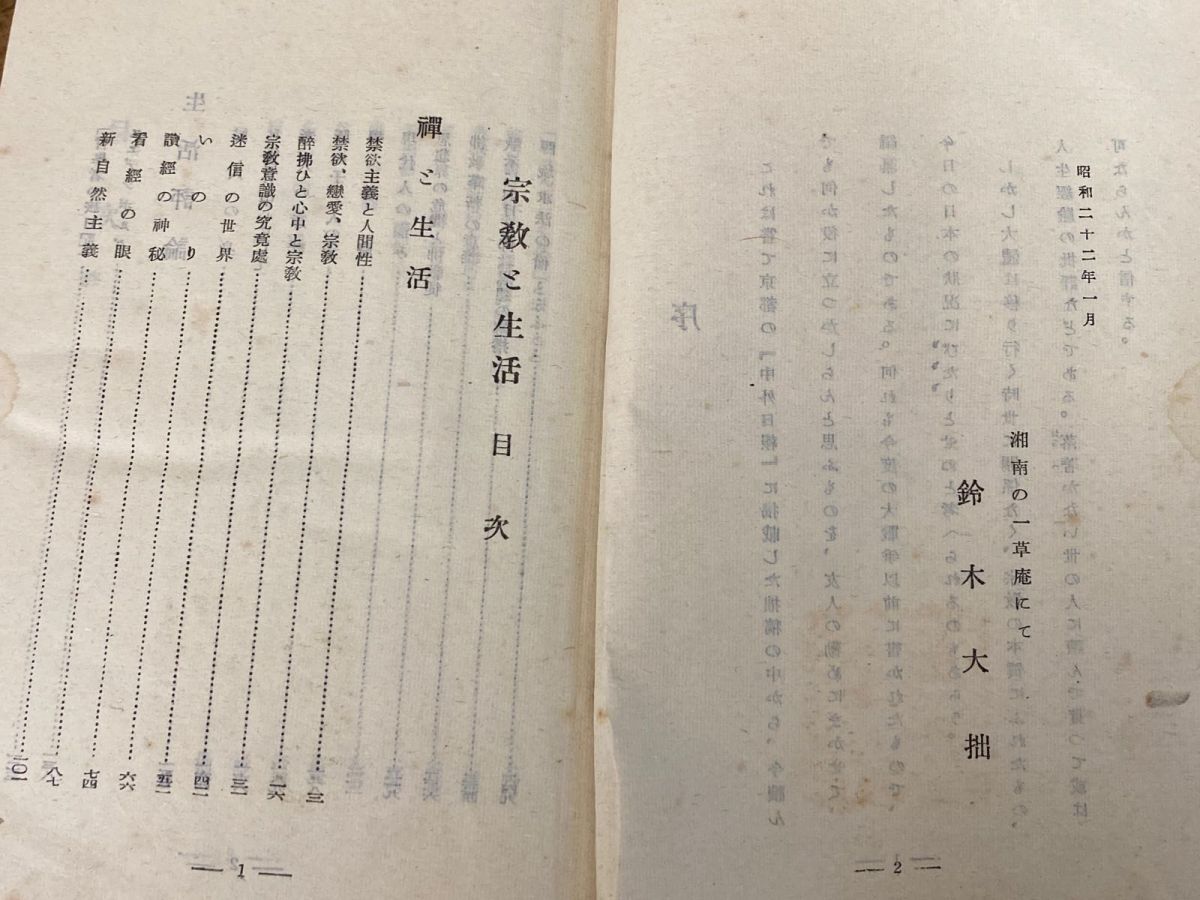 昭和二十二年一月
湘南の一草庵にて
鈴木大拙
2
宗教と生活 目次
禪と生活
禁欲主義と人間性……三
禁欲、戀愛、宗教……一六
醉拂ひと心中と宗教……三一
宗教意識の究竟處……四一
迷信の世界……五一
いのり……六六
讀經の神秘……七四
看經の眼……八七
新自然主義……一〇一
1